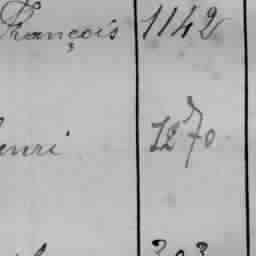 François 1142
enri 1270